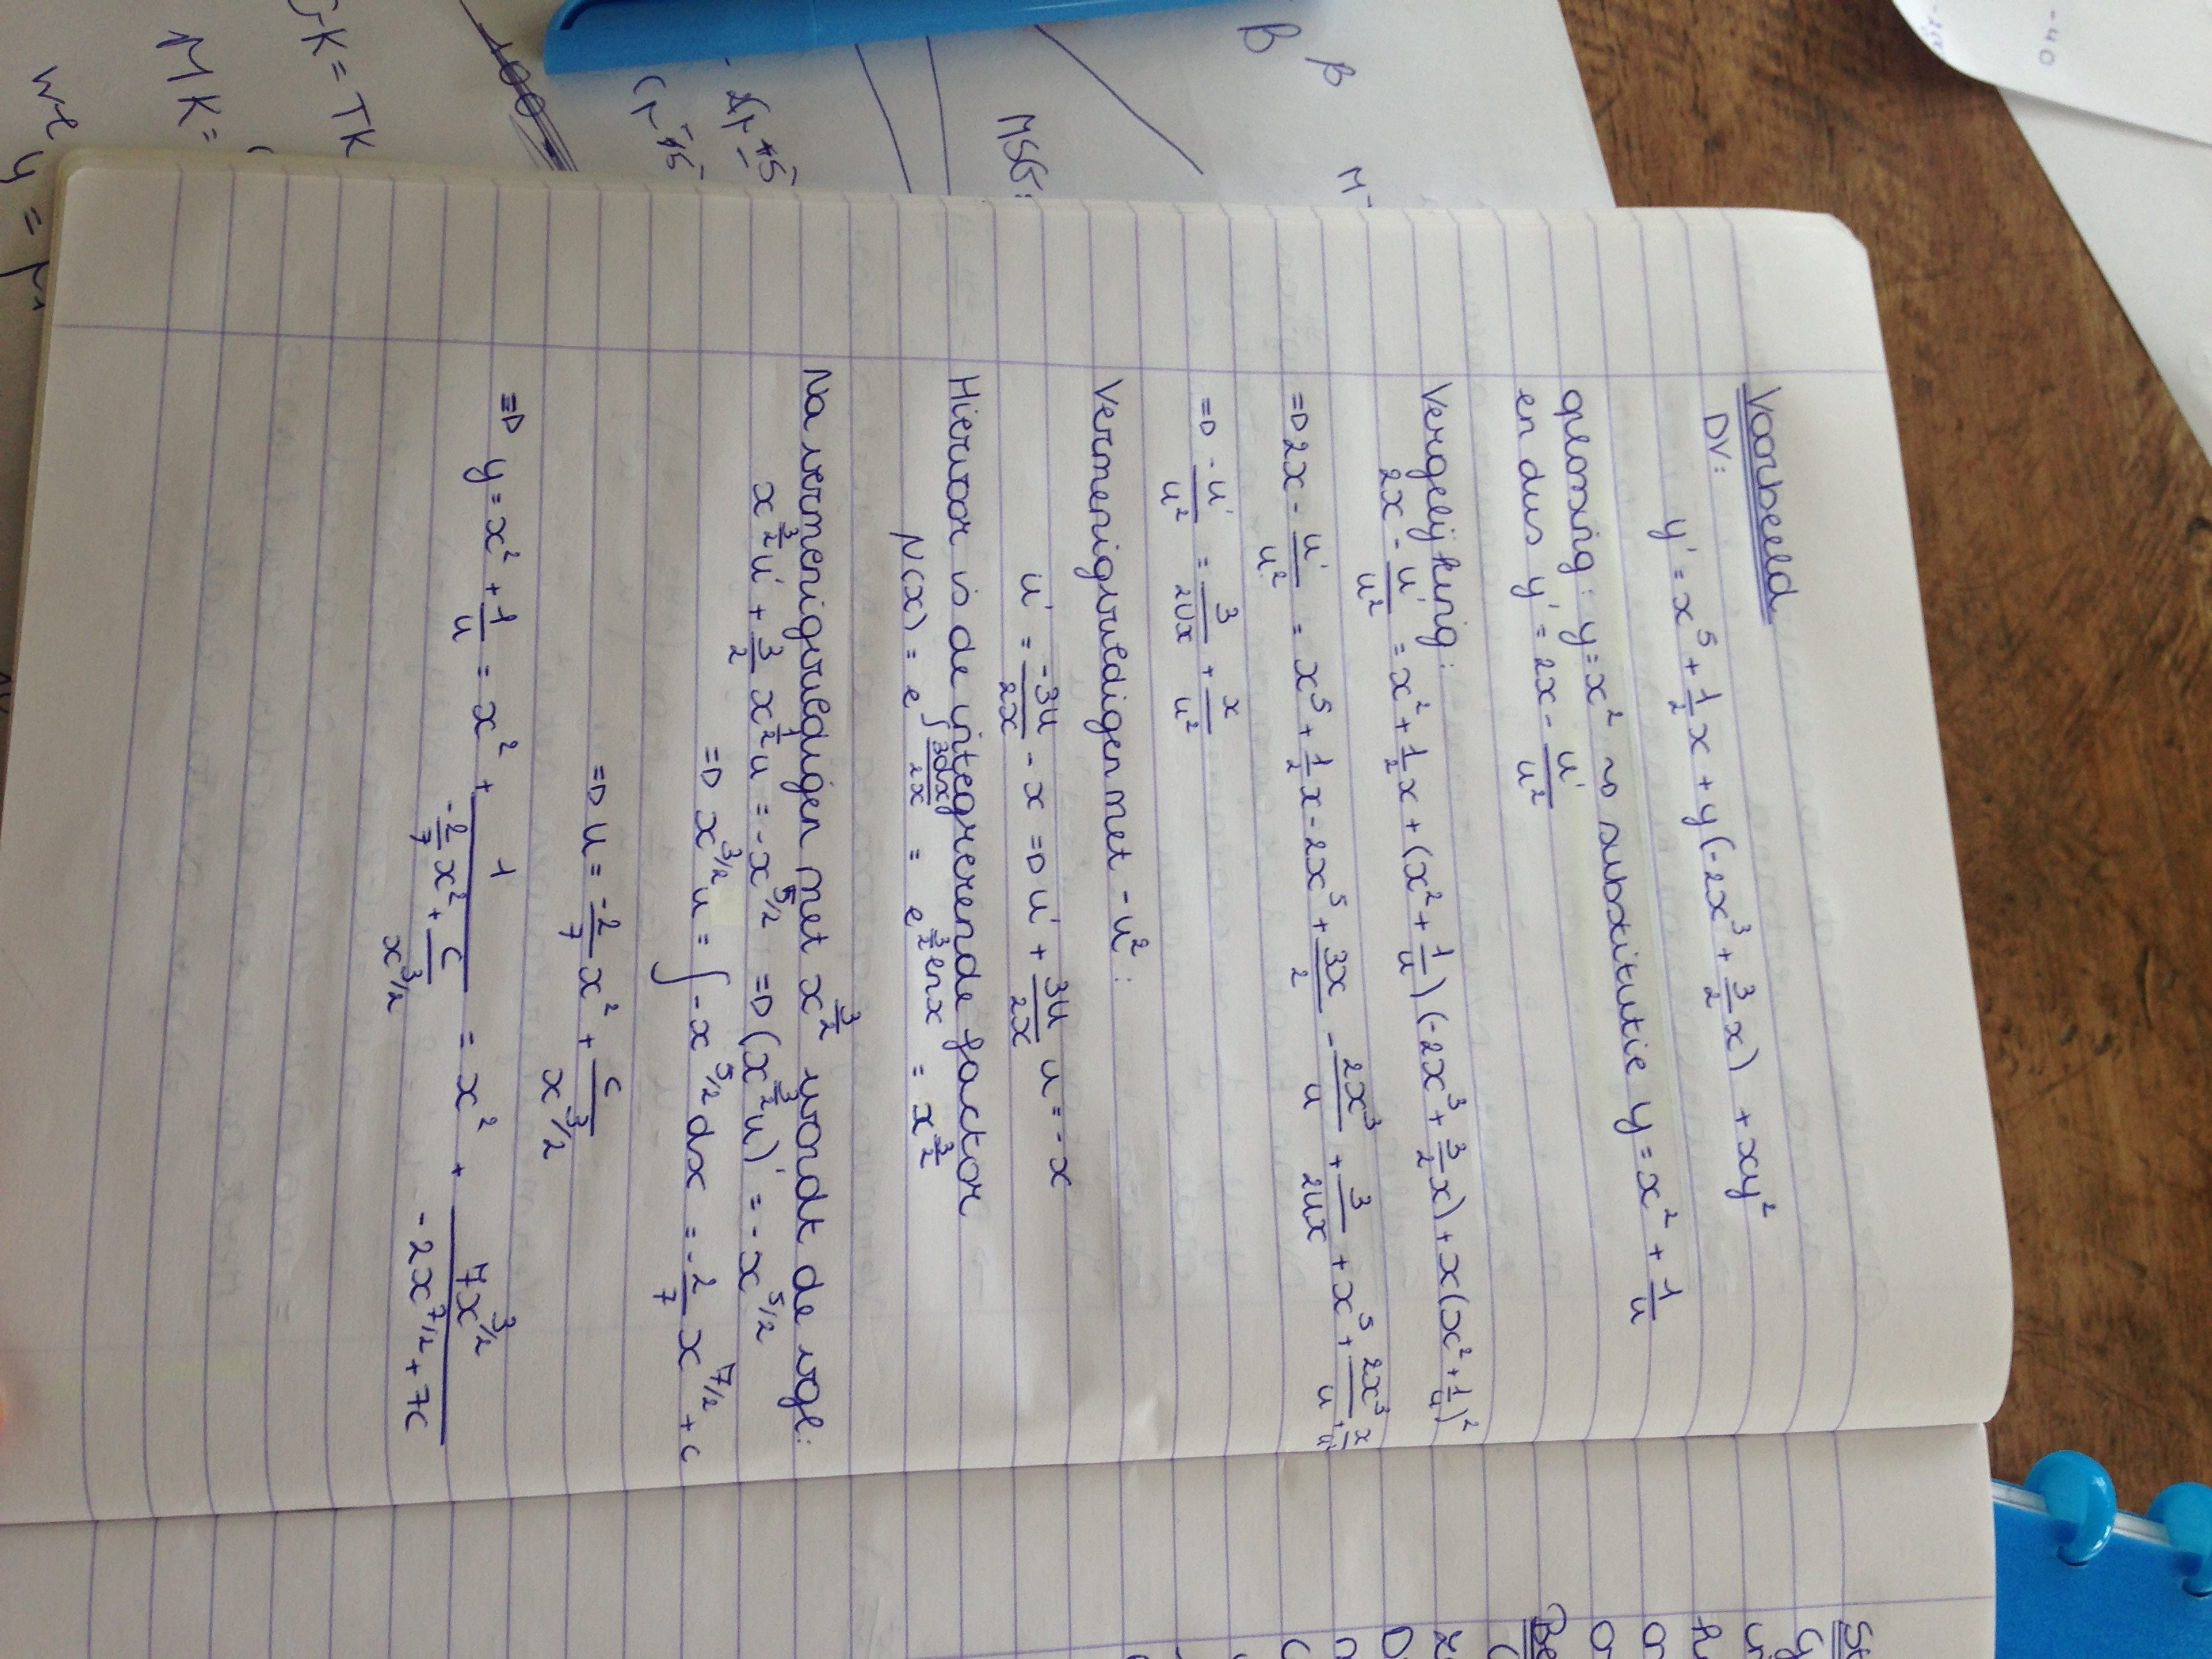 Voorbeeld
DV:
y' = x^5 + 1/2 x + y(-2x^3 + 3/2 x) + xy^2
oplossing: y = x^2 ~> substitutie y = x^2 + 1/u
en dus y' = 2x - u'/u^2
Vergelijking:
2x - u'/u^2 = x^2 + 1/2 x + (x^2 + 1/u)(-2x^3 + 3/2 x) + x(x^2 + 1/u)^2
=> 2x - u'/u^2 = x^5 + 1/2 x - 2x^5 + 3x/2 - 2x^3/u + 3/2ux + x^5 + 2x^3/u + x/u^2
=> -u'/u^2 = 3/2ux + x/u^2
Vermenigvuldigen met -u^2:
u' = -3u/2x - x => u' + 3u/2x u = -x
Hiervoor is de integrerende factor
μ(x) = e^∫3dx/2x = e^(3/2 ln x) = x^(3/2)
Na vermenigvuldigen met x^(3/2) wordt de vgl:
x^(3/2) u' + 3/2 x^(1/2) u = -x^(5/2) => (x^(3/2) u)' = -x^(5/2)
=> x^(3/2) u = ∫ -x^(5/2) dx = -2/7 x^(7/2) + c
=> u = -2/7 x^2 + c/x^(3/2)
=> y = x^2 + 1/u = x^2 + 1/(-2/7 x^2 + c/x^(3/2)) = x^2 + 7x^(3/2)/(-2x^(7/2) + 7c)
-40
β
B
MSG:
100
GK = TK
MK =
we
y =
St
G
Be